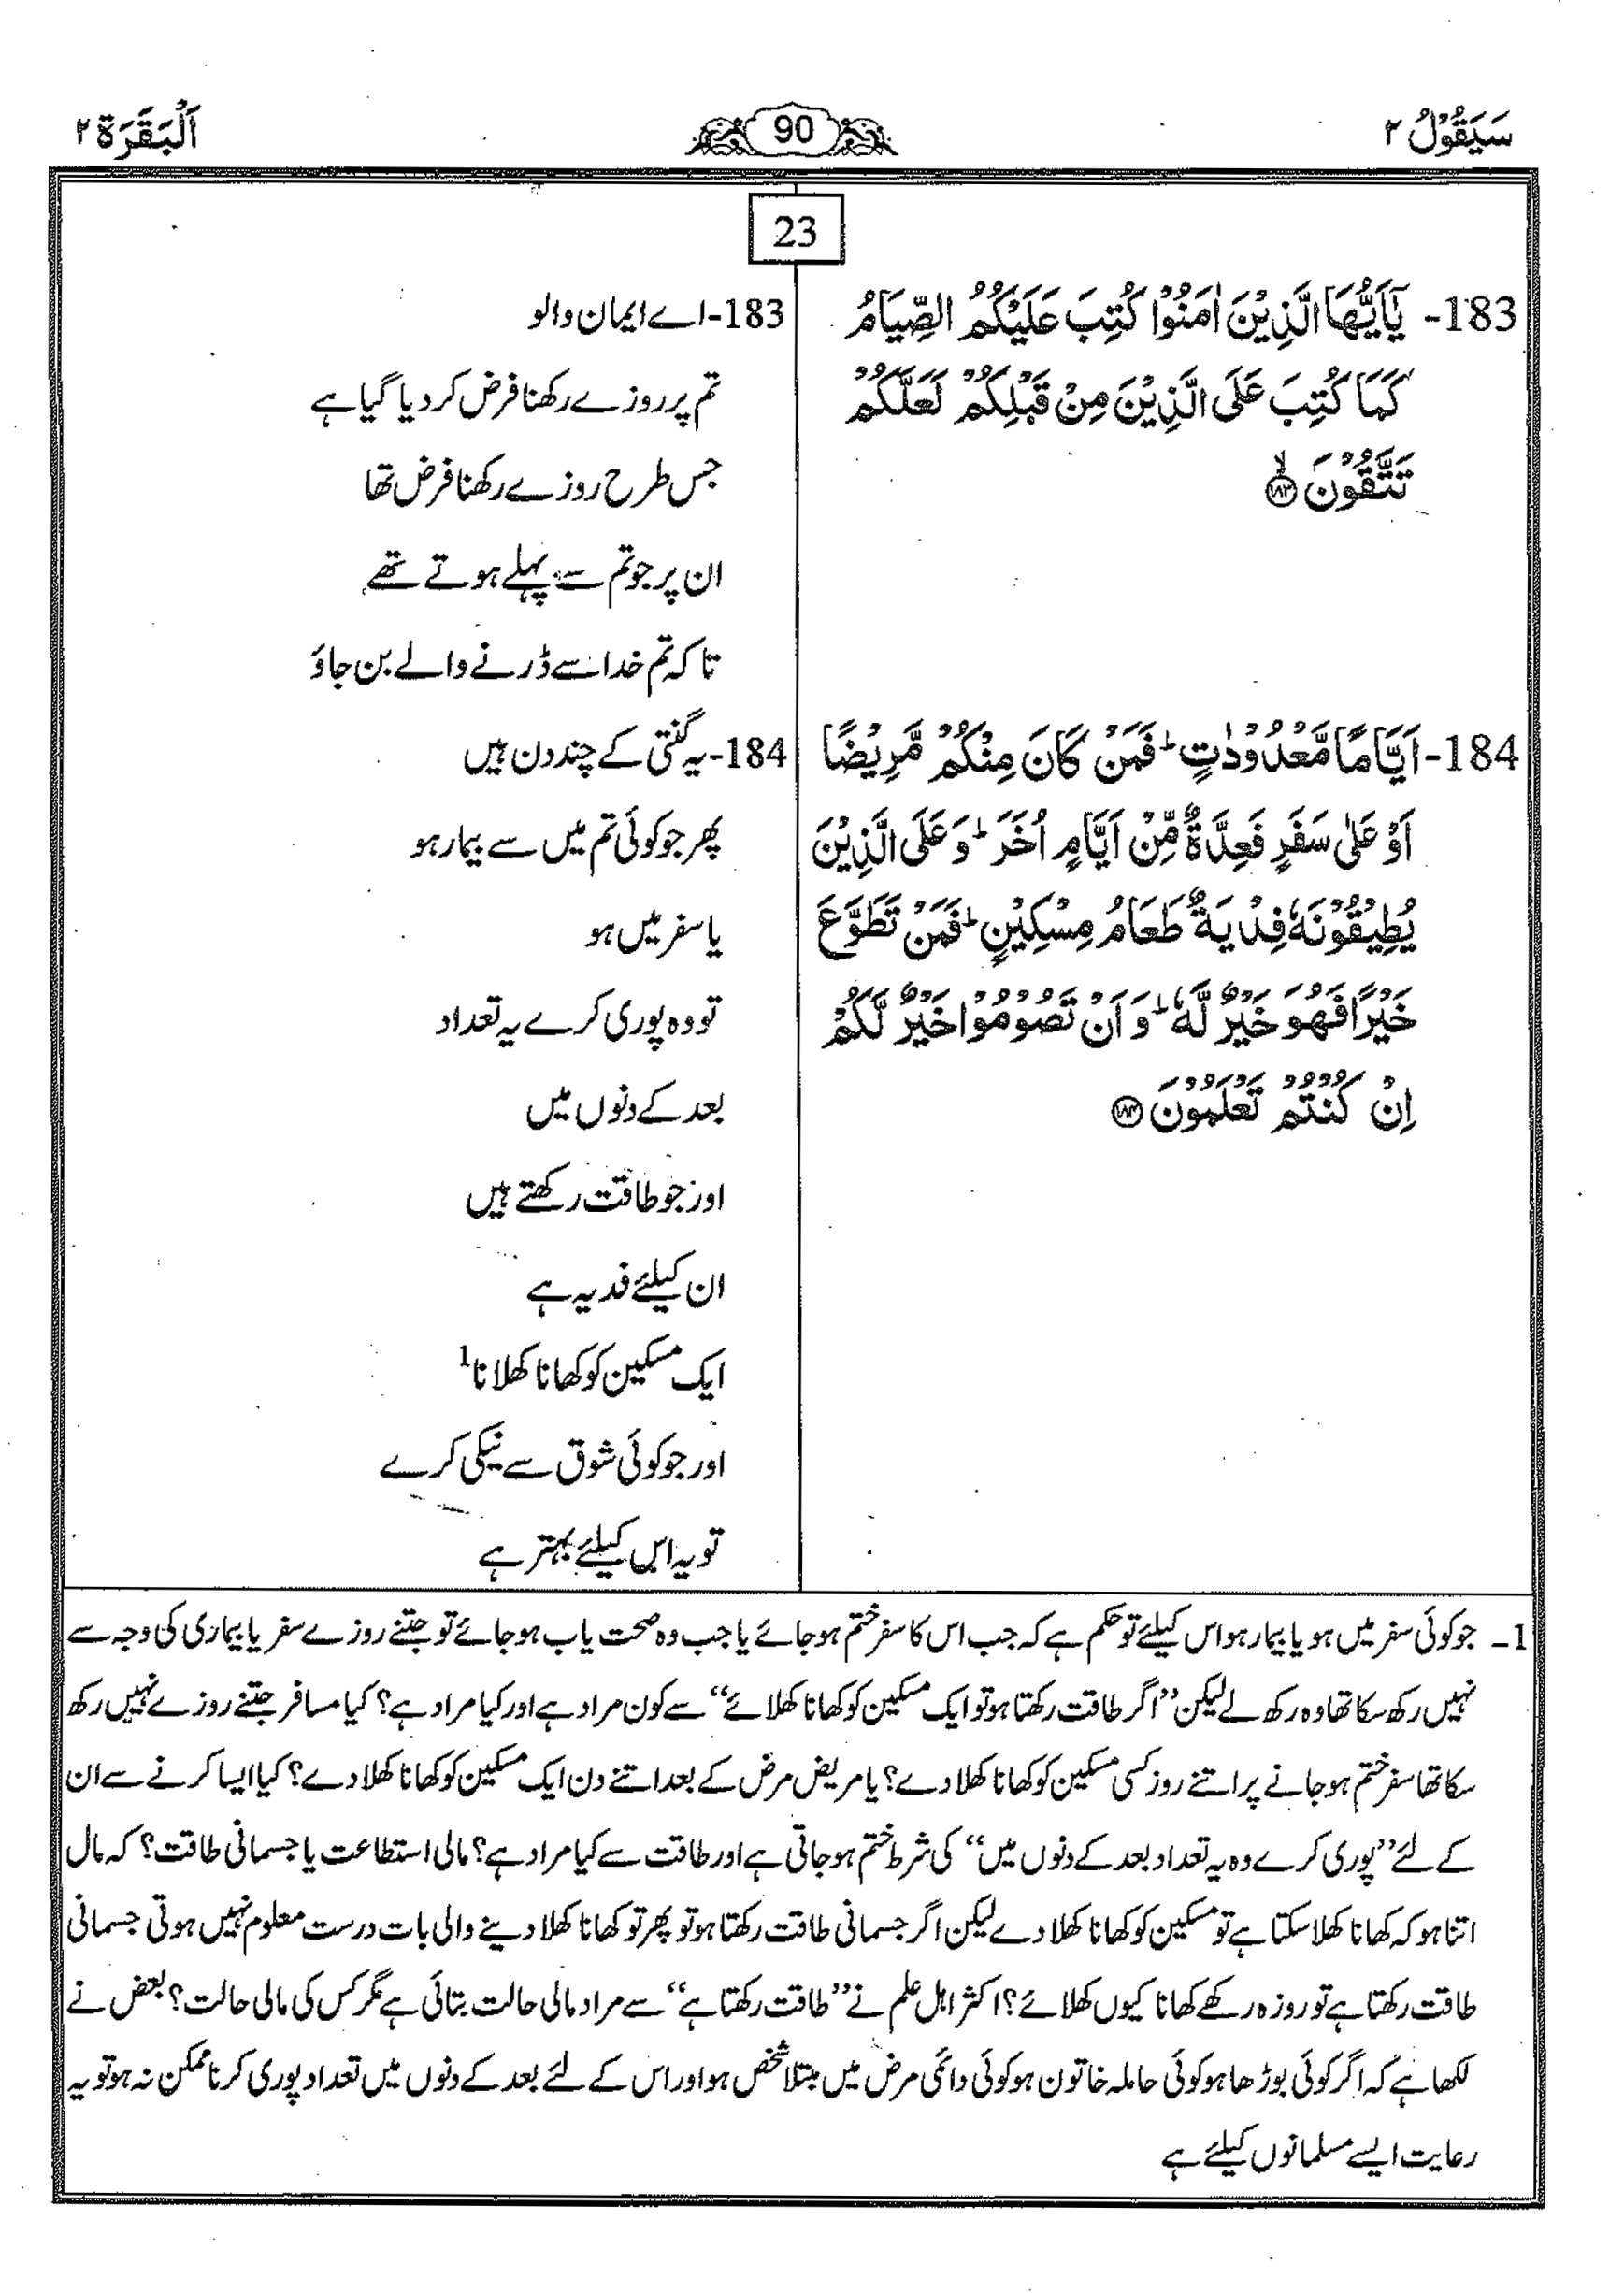 سَيَقُوۡلُ ۲
90
اَلۡبَقَرَة ۲
23
183- يٰۤاَيُّهَا الَّذِيۡنَ اٰمَنُوۡا كُتِبَ عَلَيۡكُمُ الصِّيَامُ
كَمَا كُتِبَ عَلَى الَّذِيۡنَ مِنۡ قَبۡلِكُمۡ لَعَلَّكُمۡ
تَتَّقُوۡنَ ۙ‏﴿۱۸۳﴾
184- اَيَّامًا مَّعۡدُوۡدٰتٍ ؕ فَمَنۡ كَانَ مِنۡكُمۡ مَّرِيۡضًا
اَوۡ عَلٰى سَفَرٍ فَعِدَّةٌ مِّنۡ اَيَّامٍ اُخَرَ ؕ وَ عَلَى الَّذِيۡنَ
يُطِيۡقُوۡنَهٗ فِدۡيَةٌ طَعَامُ مِسۡكِيۡنٍ ؕ فَمَنۡ تَطَوَّعَ
خَيۡرًا فَهُوَ خَيۡرٌ لَّهٗ ؕ وَ اَنۡ تَصُوۡمُوۡا خَيۡرٌ لَّكُمۡ
اِنۡ كُنۡتُمۡ تَعۡلَمُوۡنَ ﴿۱۸۴﴾
183- اے ایمان والو
تم پر روزے رکھنا فرض کر دیا گیا ہے
جس طرح روزے رکھنا فرض تھا
ان پر جو تم سے پہلے ہوتے تھے
تاکہ تم خدا سے ڈرنے والے بن جاؤ
184- یہ گنتی کے چند دن ہیں
پھر جو کوئی تم میں سے بیمار ہو
یا سفر میں ہو
تو وہ پوری کرے یہ تعداد
بعد کے دنوں میں
اور جو طاقت رکھتے ہیں
ان کیلئے فدیہ ہے
ایک مسکین کو کھانا کھلانا1
اور جو کوئی شوق سے نیکی کرے
تو یہ اس کیلئے بہتر ہے
1۔ جو کوئی سفر میں ہو یا بیمار ہو اس کیلئے تو حکم ہے کہ جب اس کا سفر ختم ہو جائے یا جب وہ صحت یاب ہو جائے تو جتنے روزے سفر یا بیماری کی وجہ سے
نہیں رکھ سکا تھا وہ رکھ لے لیکن ’’اگر طاقت رکھتا ہو تو ایک مسکین کو کھانا کھلائے‘‘ سے کون مراد ہے اور کیا مراد ہے؟ کیا مسافر جتنے روزے نہیں رکھ
سکا تھا سفر ختم ہو جانے پر اتنے روز کسی مسکین کو کھانا کھلا دے؟ یا مریض مرض کے بعد اتنے دن ایک مسکین کو کھانا کھلا دے؟ کیا ایسا کرنے سے ان
کے لئے ’’پوری کرے وہ یہ تعداد بعد کے دنوں میں‘‘ کی شرط ختم ہو جاتی ہے اور طاقت سے کیا مراد ہے؟ مالی استطاعت یا جسمانی طاقت؟ کہ مال
اتنا ہو کہ کھانا کھلا سکتا ہے تو مسکین کو کھانا کھلا دے لیکن اگر جسمانی طاقت رکھتا ہو تو پھر تو کھانا کھلا دینے والی بات درست معلوم نہیں ہوتی جسمانی
طاقت رکھتا ہے تو روزہ رکھے کھانا کیوں کھلائے؟ اکثر اہل علم نے ’’طاقت رکھتا ہے‘‘ سے مراد مالی حالت بتائی ہے مگر کس کی مالی حالت؟ بعض نے
لکھا ہے کہ اگر کوئی بوڑھا ہو کوئی حاملہ خاتون ہو کوئی دائمی مرض میں مبتلا شخص ہو اور اس کے لئے بعد کے دنوں میں تعداد پوری کرنا ممکن نہ ہو تو یہ
رعایت ایسے مسلمانوں کیلئے ہے